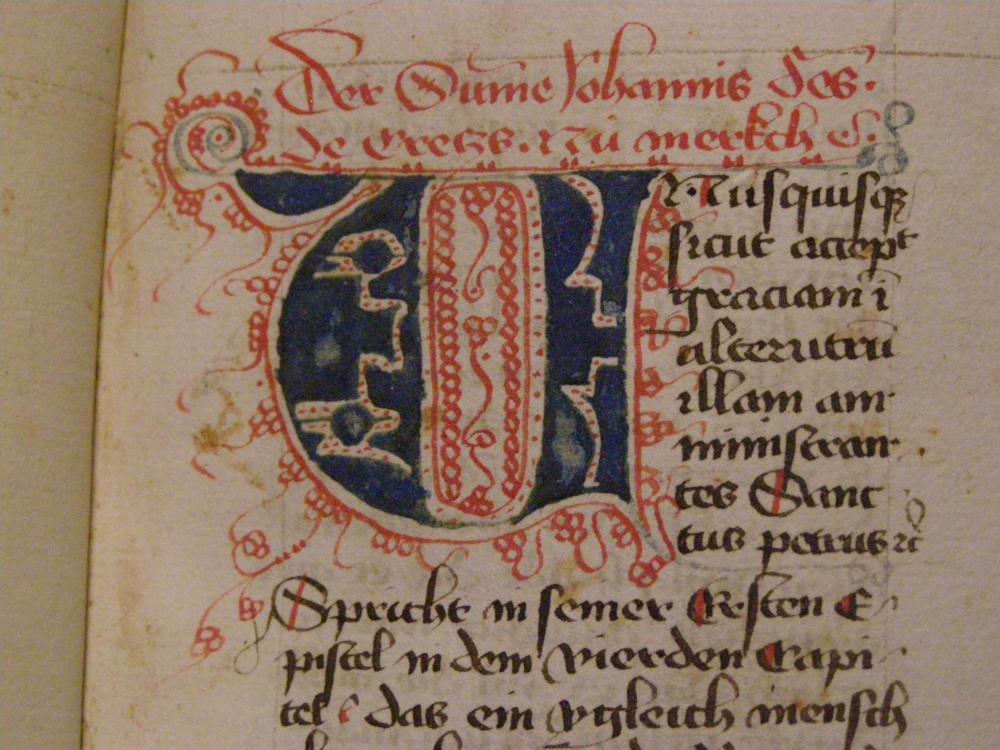 Der Sum̄e Johannis des.
de Cretz. Nu merkch
Unusquisqȝ
sicut accepit
graciam ī
alterutrū
illam am
ministran
tes Sanc
tus petrus ⁊c̄
Spricht in seiner Ersten E
pistel in dem vierden Capi
tel das ein ygleich mensch